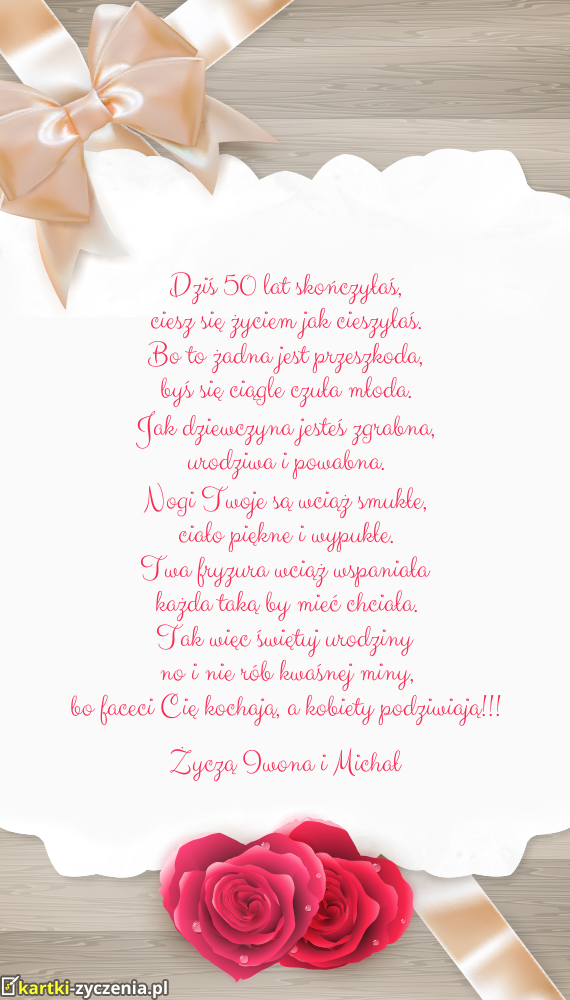 Dziś 50 lat skończyłaś,
ciesz się życiem jak cieszyłaś.
Bo to żadna jest przeszkoda,
byś się ciągle czuła młoda.
Jak dziewczyna jesteś zgrabna,
urodziwa i powabna.
Nogi Twoje są wciąż smukłe,
ciało piękne i wypukłe.
Twa fryzura wciąż wspaniała
każda taką by mieć chciała.
Tak więc świętuj urodziny
no i nie rób kwaśnej miny,
bo faceci Cię kochają, a kobiety podziwiają!!!
Życzą Iwona i Michał
kartki-zyczenia.pl